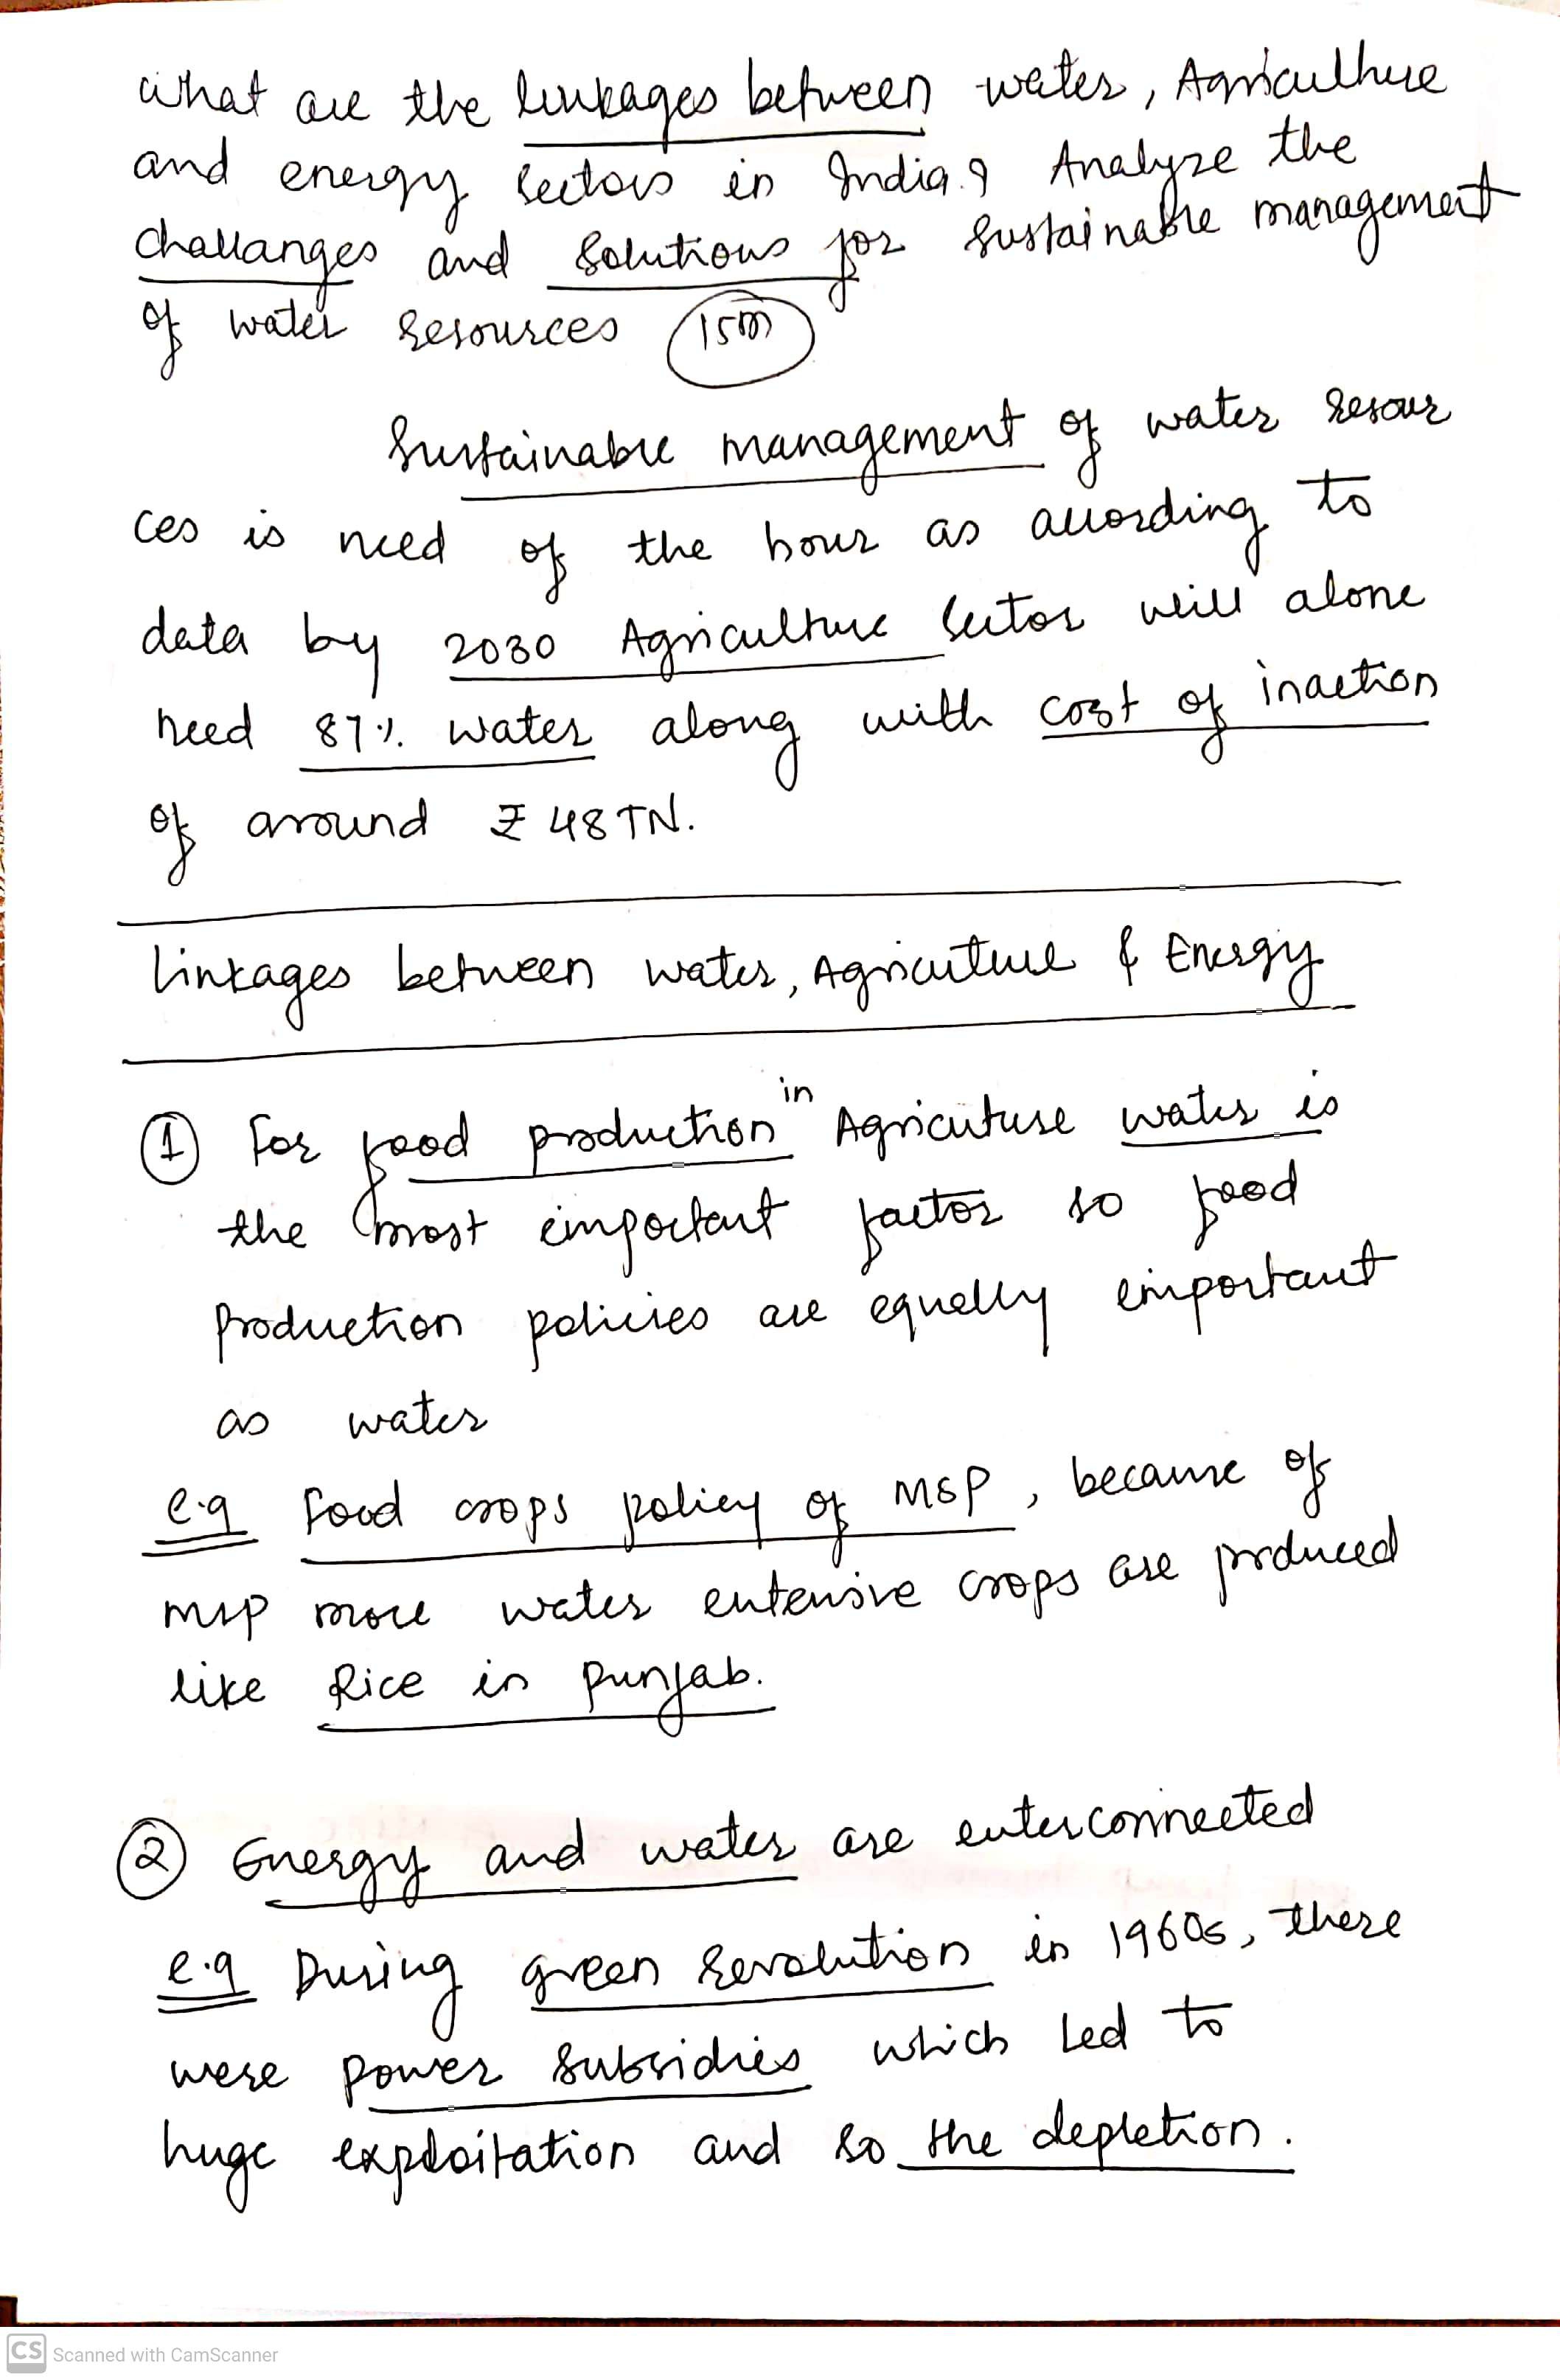 What are the linkages between water, Agriculture
and energy sectors in India? Analyze the
challanges and solutions for sustainable management
of water resources 15m
Sustainable management of water resour
ces is need of the hour as according to
data by 2030 Agriculture sector will alone
need 87% water along with cost of inaction
of around ₹ 48 TN.
Linkages between water, Agriculture & Energy
① For food production in Agriculture water is
the most important factor so food
production policies are equally important
as water
e.g food crops policy of MSP, because of
MSP more water intensive crops are produced
like Rice in Punjab.
② Energy and water are interconnected
e.g During green revolution in 1960s, there
were power subsidies which led to
huge exploitation and so the depletion.
CS Scanned with CamScanner